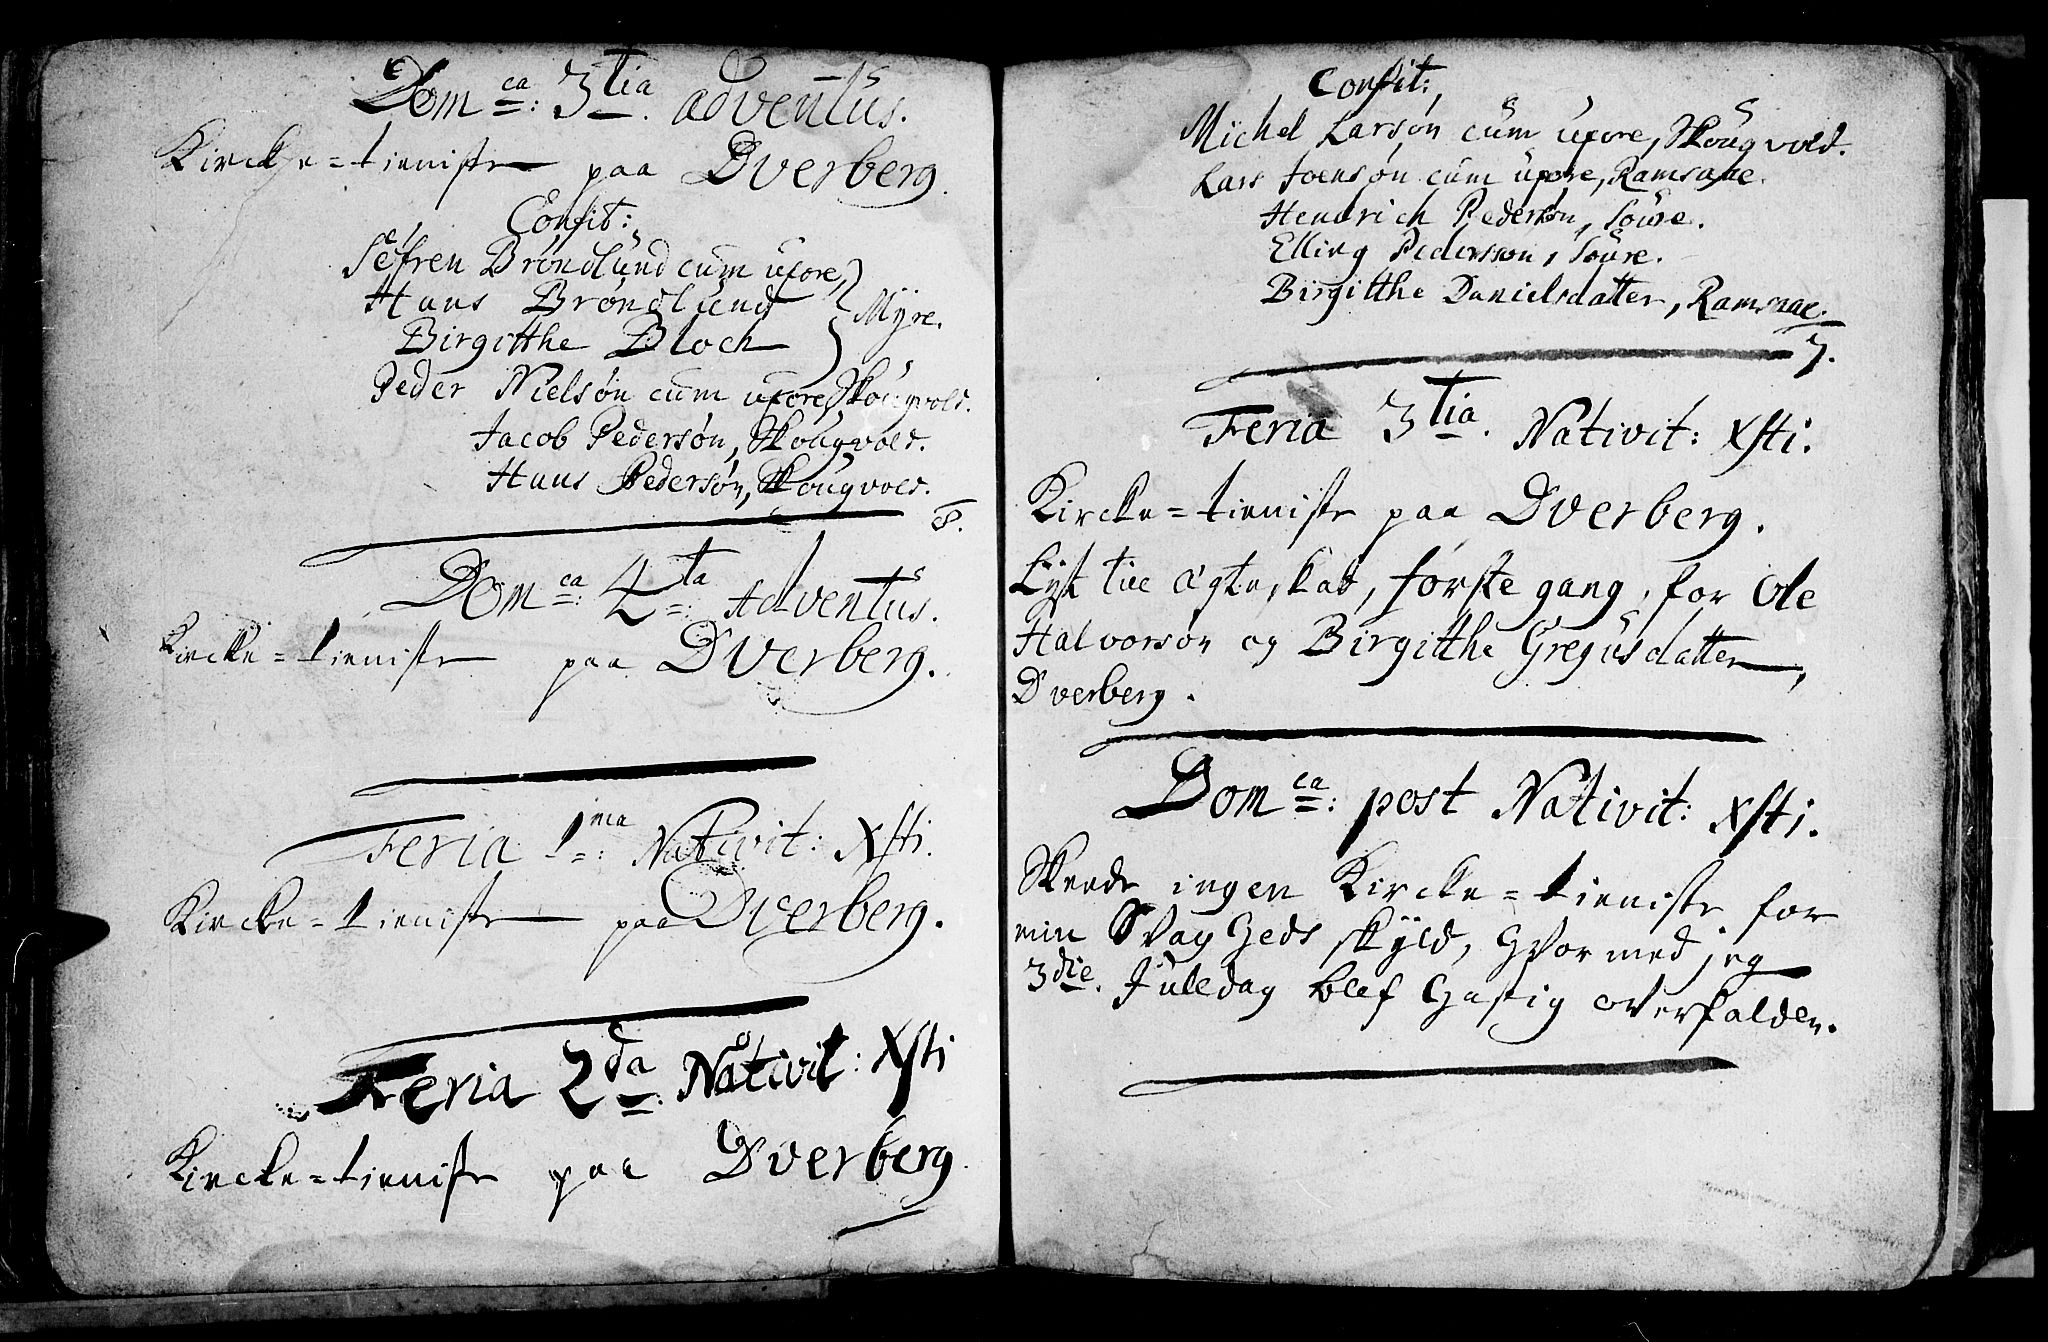 Dom ca: 3tia. Adventus.
Kircke=tieniste paa Dverberg.
Confit:
Søfren Brøndlund cum uxore,
Hans Brøndlund
Myre.
Birgitthe Bloch
Peder Nielsøn cum uxore, Skougvold.
Jacob Pedersøn, Skougvold.
Hans Pedersøn, Skougvold.
8.
Dom ca: 4ta: Adventus.
Kircke=tieniste paa Dverberg.
Feria 1ma: Nativit: Xsti.
Kircke=tieniste paa Dverberg.
Feria 2da: Nativit: Xsti
Kircke=tieniste paa Dverberg.
Confit:
Michel Larsøn cum uxore, Skougvold.
Lars Joensøn cum uxore, Ramsaae.
Hendrich Pedersøn, Soure.
Elling Pedersøn, Soure.
Birgitthe Danielsdatter, Ramsaae.
7.
Feria 3tia. Nativit: Xsti.
Kircke=tieniste paa Dverberg.
Lyst til Ægteskab, første gang, for Ole
Halvorsøn og Birgitthe Gregusdatter,
Dverberg.
Dom ca: post Nativit: Xsti.
Skeede ingen Kircke=tieniste for
min Svagheds skyld, hvormed jeg
3die. Juledag blef hastig overfalden.